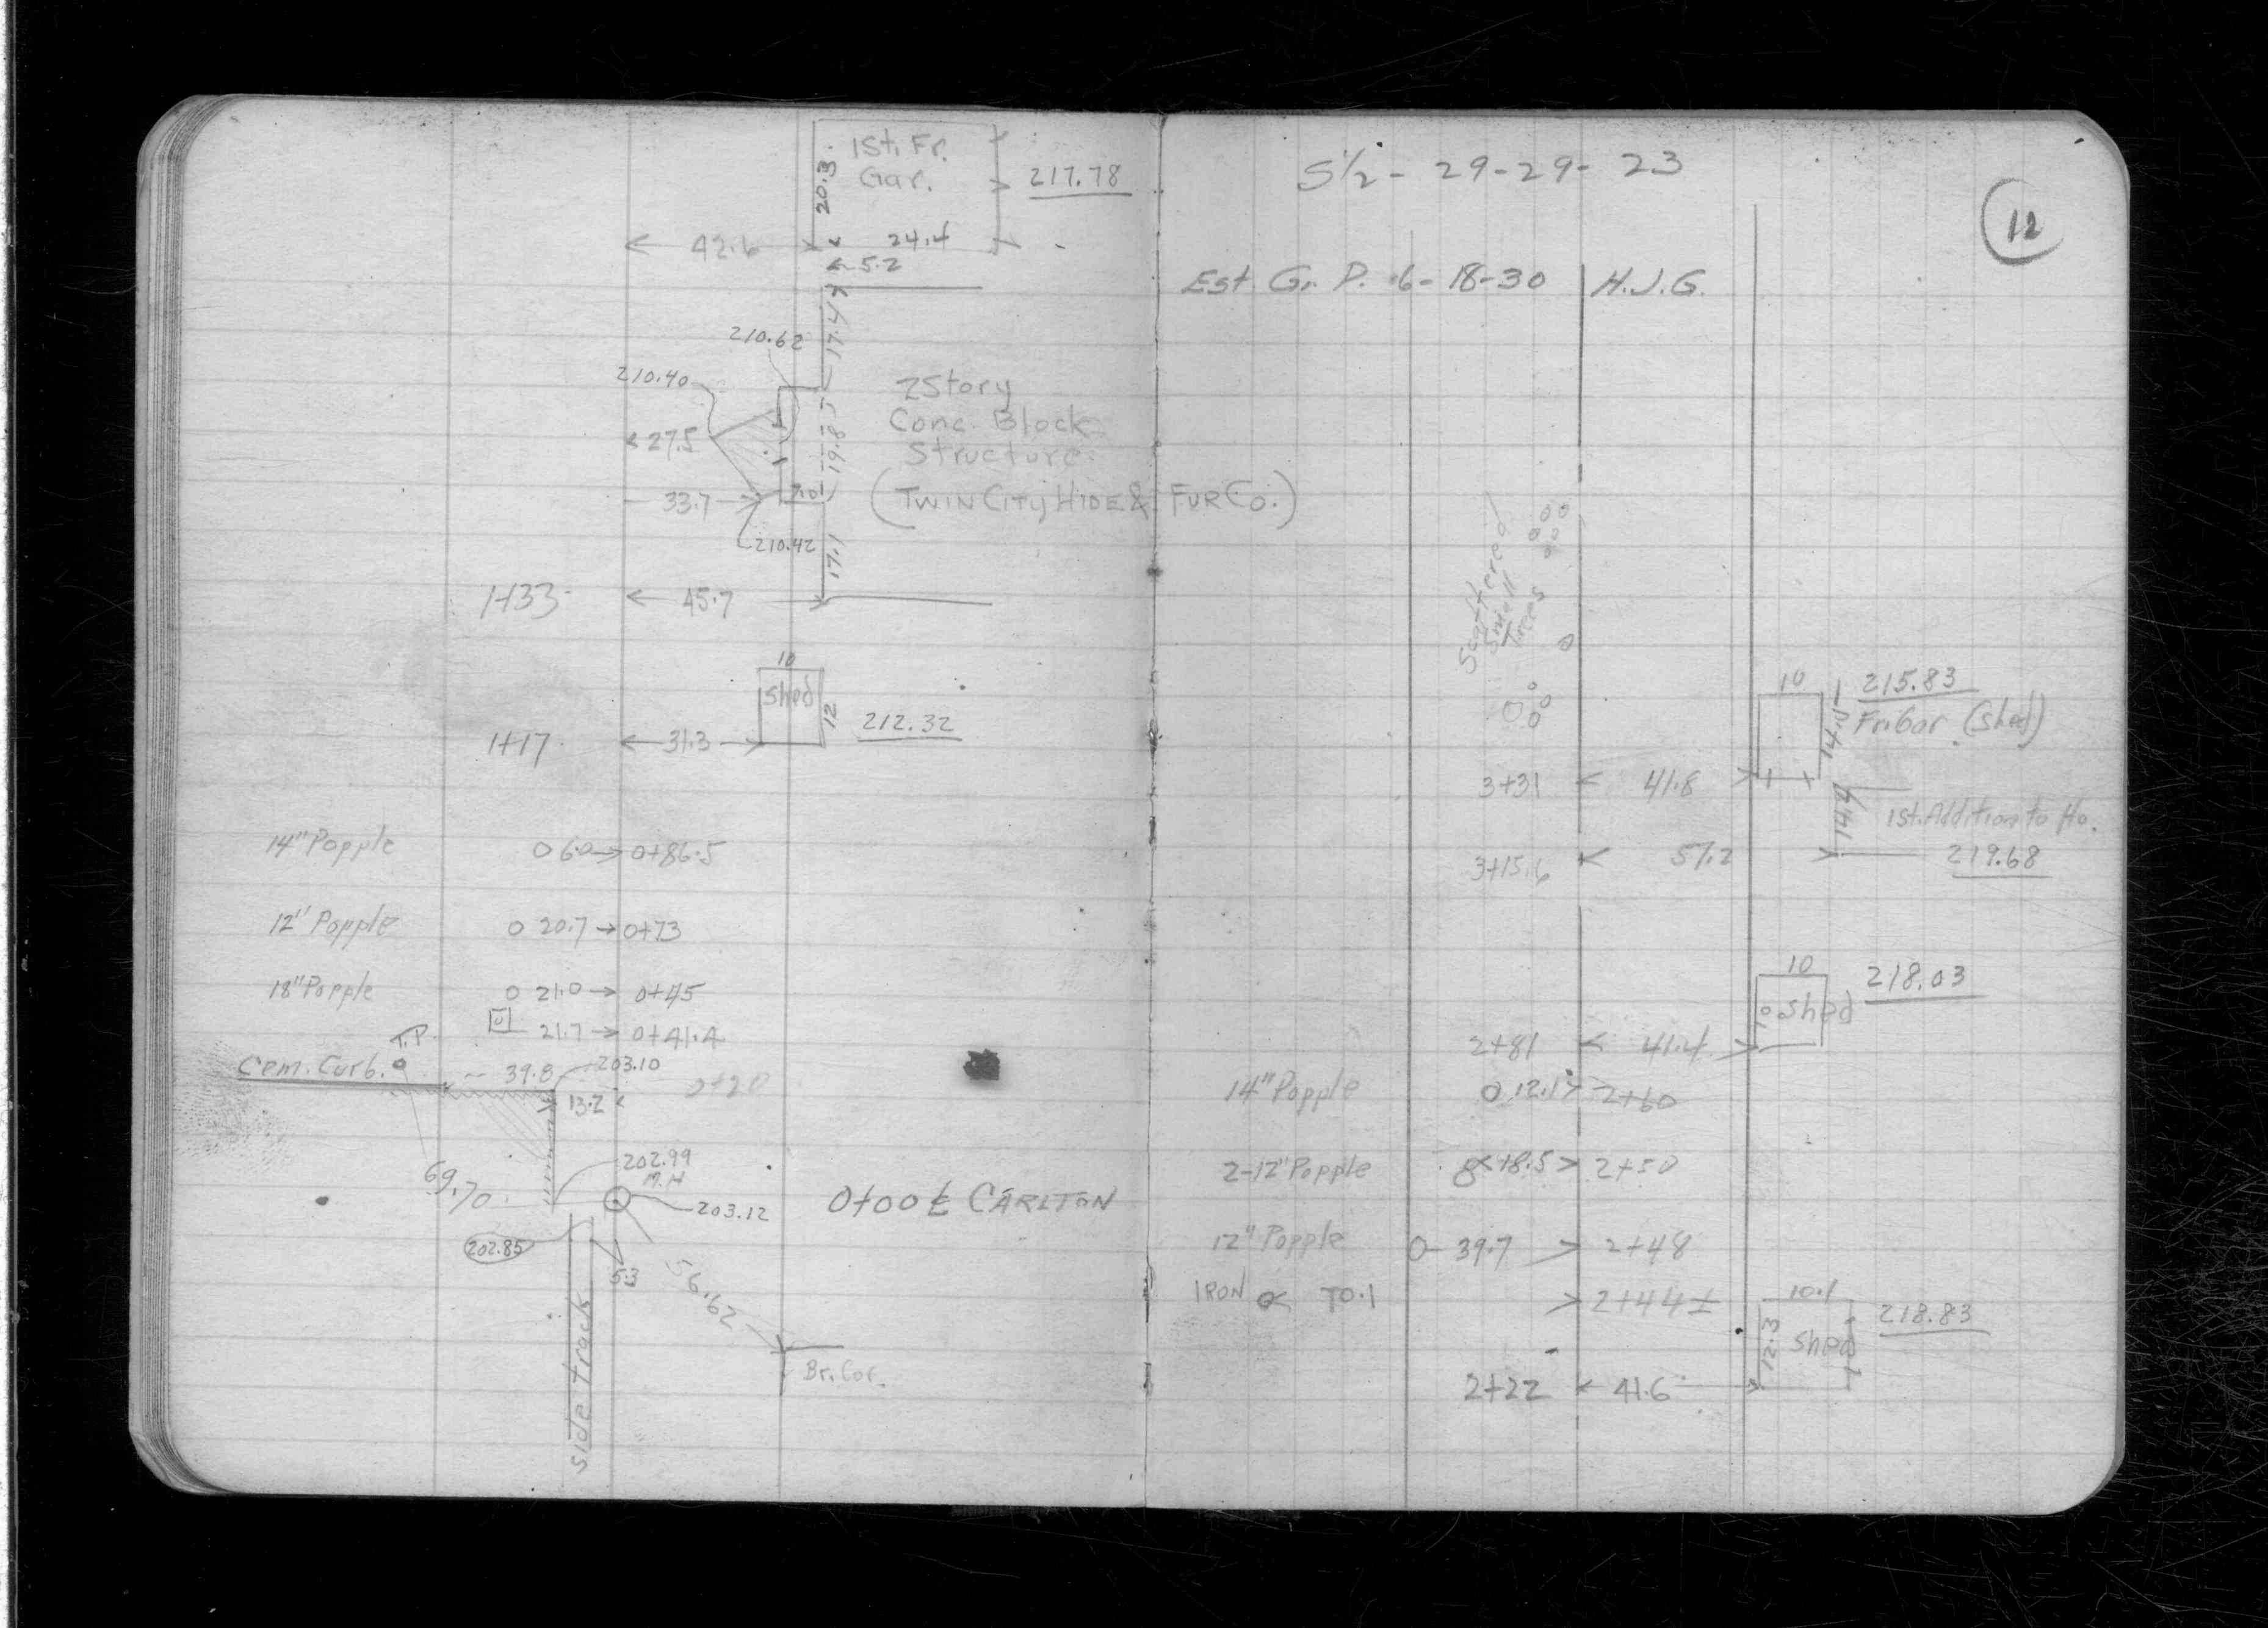 1St. Fr.
Gar.
20.3
217.78
42.6
24.4
5.2
17.4
210.62
210.40
2Story
Conc. Block
Structure
27.5
19.8
33.7
7.0
(TWIN CITY HIDE & FUR CO.)
210.42
17.1
1+33
45.7
10
Shed
12
212.32
1+17
31.3
14" Popple 6.0 0+86.5
12" Popple 20.7 0+73
18" Popple 21.0 0+45
21.7 0+41.4
T.P.
Cem. Curb.
39.8
203.10
0+20
13.2
202.99
M.H
69.70
203.12
0+00 ℄ CARLTON
202.85
5.3
56.62
Side track
Br. Cor.
S½ - 29-29-23
12
Est. Gr. P. 6-18-30 H.J.G.
Scattered
Small
Trees
10
215.83
14.2
Fr. Gar (Shed)
3+31 41.8
14.4
1st. Addition to Ho.
3+15.6 57.2
219.68
10
218.03
10
Shed
2+81 41.4
14" Popple 12.1 2+60
2-12" Popple 18.5 2+50
12" Popple 39.7 2+48
IRON T0.1 2+44±
10.1
218.83
12.3
Shed
2+22 41.6